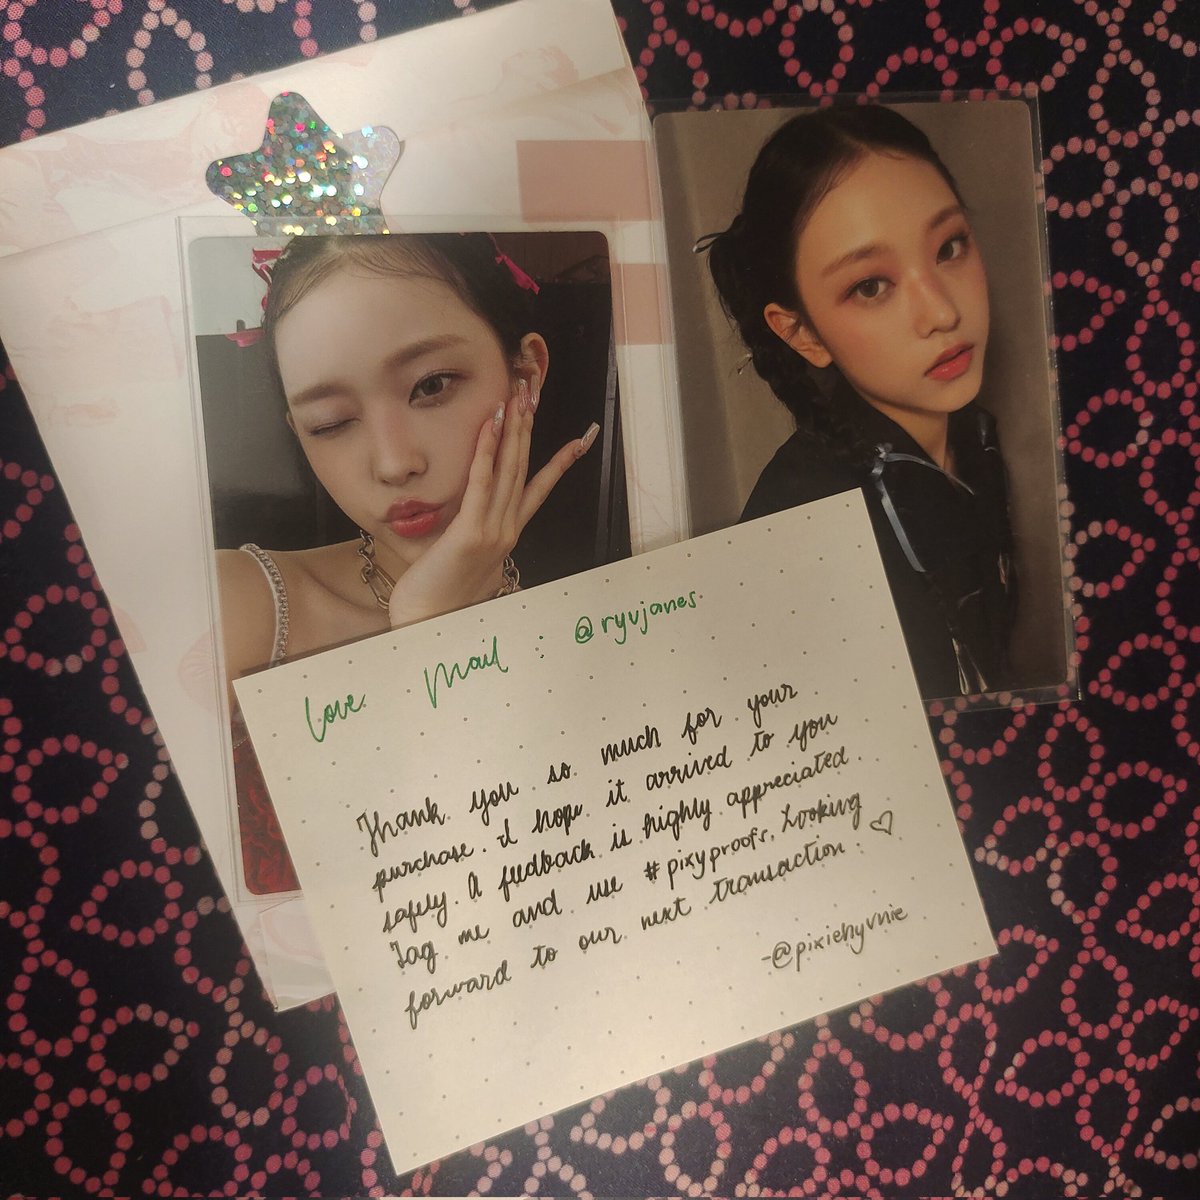 Love Mail : @ryujanes
Thank you so much for your
purchase. I hope it arrived to you
safely. A feedback is highly appreciated.
Tag me and use #pixyproofs. Looking
forward to our next transaction. ♡
-@pixiehyunie